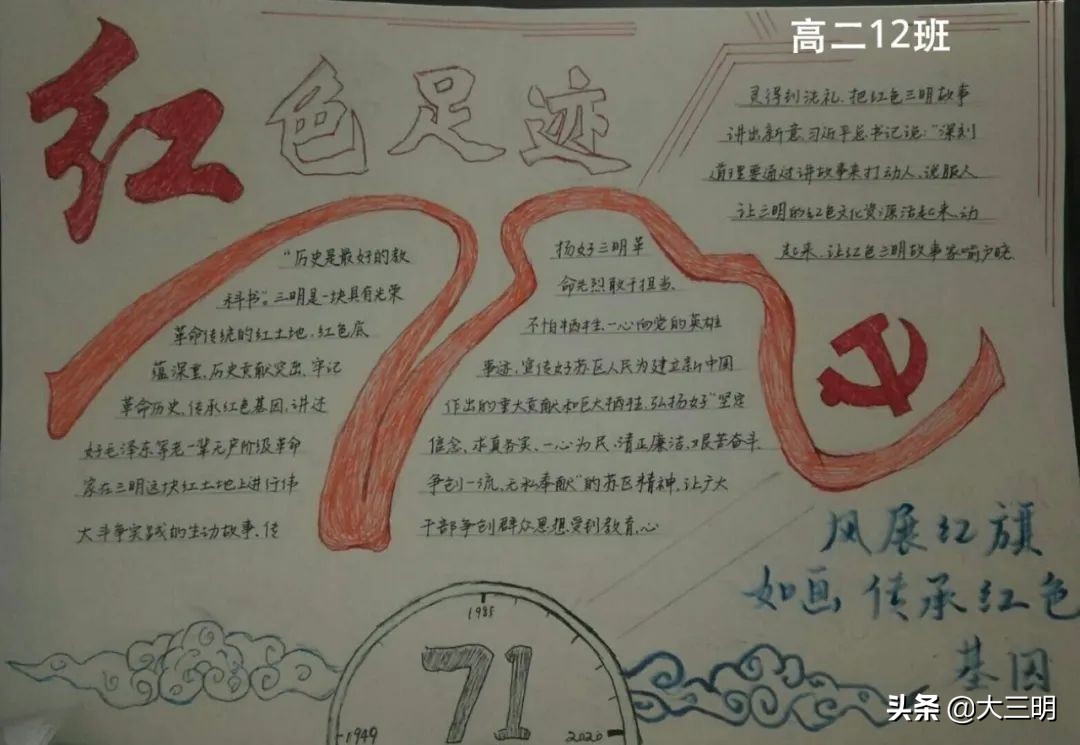 高二12班
红色足迹
“历史是最好的教
科书”。三明是一块具有光荣
革命传统的红土地，红色底
蕴深重、历史贡献突出、牢记
革命历史、传承红色基因，讲述
好毛泽东等老一辈无产阶级革命
家在三明这块红土地上进行伟
大斗争实践的生动故事、传
扬好三明革
命先烈敢于担当、
不怕牺牲、一心向党的英雄
事迹，宣传好苏区人民为建立新中国
作出的重大贡献和巨大牺牲，弘扬好“坚定
信念、求真务实、一心为民、清正廉洁、艰苦奋斗、
争创一流、无私奉献”的苏区精神、让广大
干部争创群众思想受到教育、心
灵得到洗礼、把红色三明故事
讲出新意、习近平总书记说：“深刻
道理要通过讲故事来打动人、说服人
让三明的红色文化资源活起来、动
起来、让红色三明故事家喻户晓
风展红旗
如画 传承红色
基因
1985
71
1949
2020
头条 @大三明